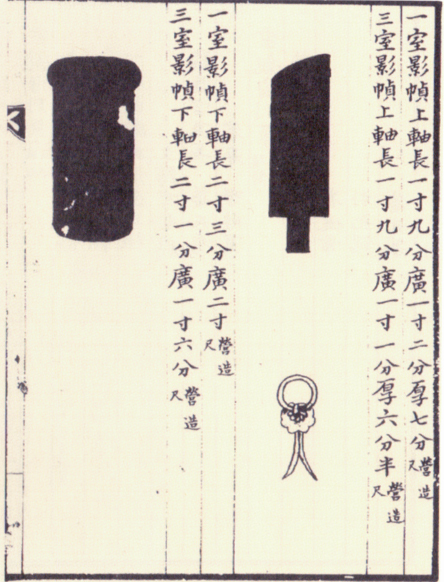 一室影幀上軸長一寸九分廣一寸二分厚七分營造尺
三室影幀上軸長一寸九分廣一寸一分厚六分半營造尺
一室影幀下軸長二寸三分廣二寸營造尺
三室影幀下軸長二寸一分廣一寸六分營造尺